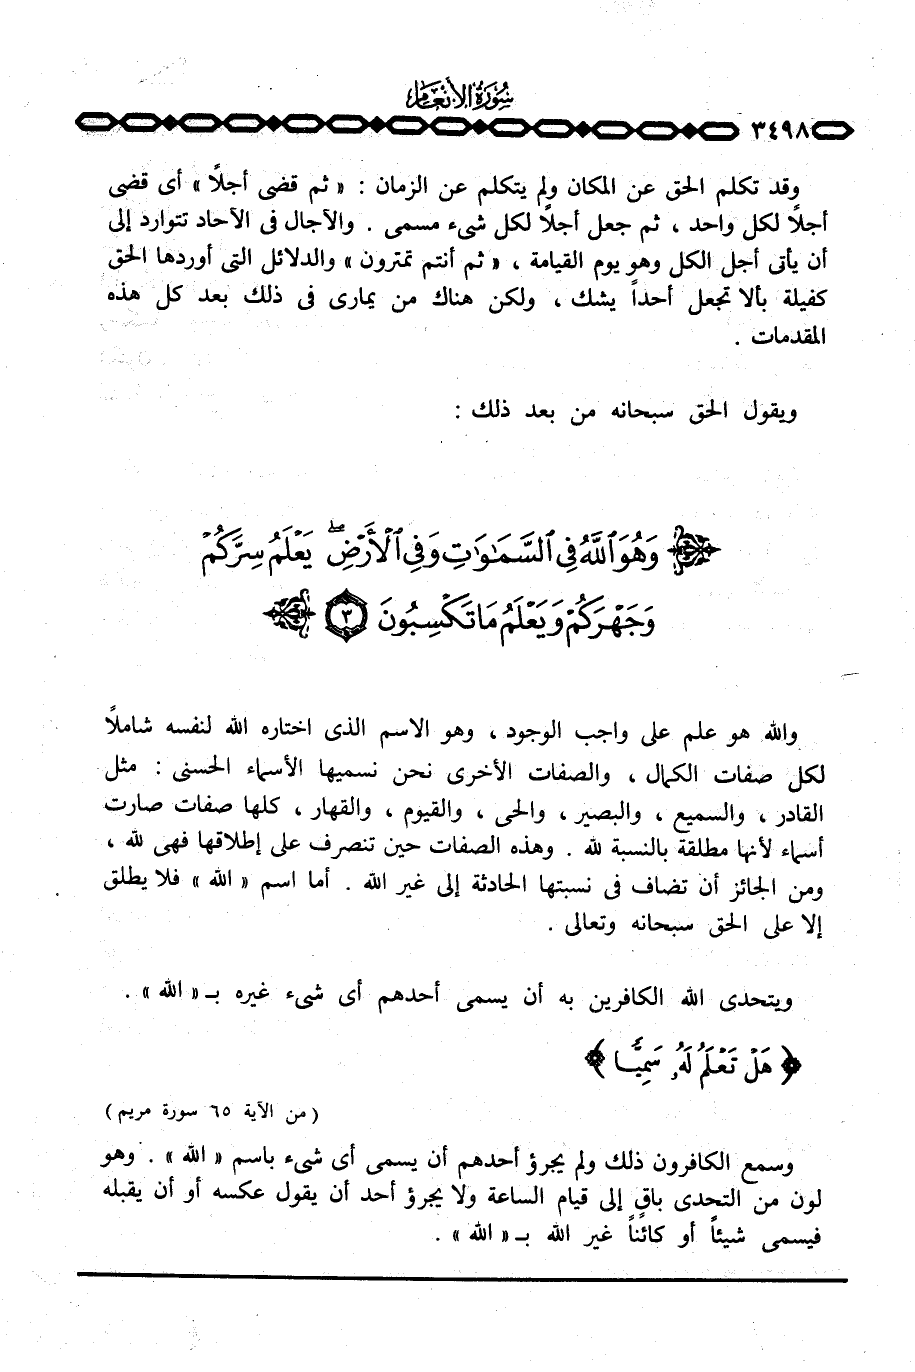 سورة الأنعام
٣٤٩٨
وقد تكلم الحق عن المكان ولم يتكلم عن الزمان : « ثم قضى أجلًا » أى قضى
أجلًا لكل واحد ، ثم جعل أجلًا لكل شىء مسمى . والآجال فى الآحاد تتوارد إلى
أن يأتى أجل الكل وهو يوم القيامة ، « ثم أنتم تمترون » والدلائل التى أوردها الحق
كفيلة بألا تجعل أحداً يشك ، ولكن هناك من يمارى فى ذلك بعد كل هذه
المقدمات .
ويقول الحق سبحانه من بعد ذلك :
وَهُوَ ٱللَّهُ فِى ٱلسَّمَـٰوَٰتِ وَفِى ٱلْأَرْضِ ۖ يَعْلَمُ سِرَّكُمْ
وَجَهْرَكُمْ وَيَعْلَمُ مَا تَكْسِبُونَ ٣
والله هو علم على واجب الوجود ، وهو الاسم الذى اختاره الله لنفسه شاملًا
لكل صفات الكمال ، والصفات الأخرى نحن نسميها الأسماء الحسنى : مثل
القادر ، والسميع ، والبصير ، والحى ، والقيوم ، والقهار ، كلها صفات صارت
أسماء لأنها مطلقة بالنسبة لله . وهذه الصفات حين تنصرف على إطلاقها فهى لله ،
ومن الجائز أن تضاف فى نسبتها الحادثة إلى غير الله . أما اسم « الله » فلا يطلق
إلا على الحق سبحانه وتعالى .
ويتحدى الله الكافرين به أن يسمى أحدهم أى شىء غيره بـ « الله » .
﴿ هَلْ تَعْلَمُ لَهُۥ سَمِيًّا ﴾
( من الآية ٦٥ سورة مريم )
وسمع الكافرون ذلك ولم يجرؤ أحدهم أن يسمى أى شىء باسم « الله » . وهو
لون من التحدى باقٍ إلى قيام الساعة ولا يجرؤ أحد أن يقول عكسه أو أن يقبله
فيسمى شيئاً أو كائناً غير الله بـ « الله » .